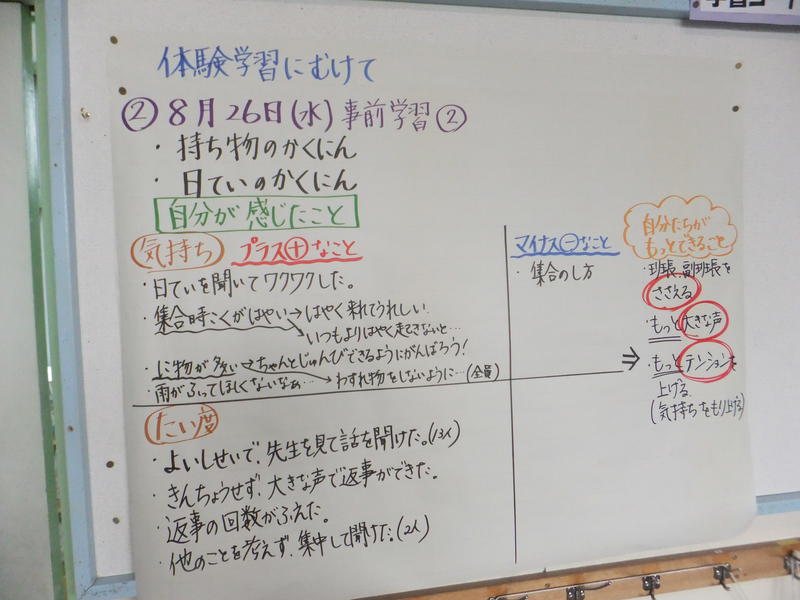 学習コー
体験学習にむけて
② 8月26日(水)事前学習②
・持ち物のかくにん
・日ていのかくにん
自分が感じたこと
気持ち プラス⊕なこと
・日ていを聞いてワクワクした。
・集合時こくがはやい→はやく来れてうれしい
いつもよりはやく起きないと…
・に物が多い→ちゃんとじゅんびできるようにがんばろう!
・雨がふってほしくないなぁ…→わすれ物をしないように…(全員)
たい度
・よいしせいで、先生を見て話を聞けた。(13人)
・きんちょうせず、大きな声で返事ができた。
・返事の回数がふえた。
・他のことを考えず、集中して聞けた。(2人)
マイナス⊖なこと
・集合のし方
自分たちが
もっとできること
・班長、副班長を
ささえる
・もっと大きな声
⇒・もっとテンションを
上げる
(気持ちをもり上げる)